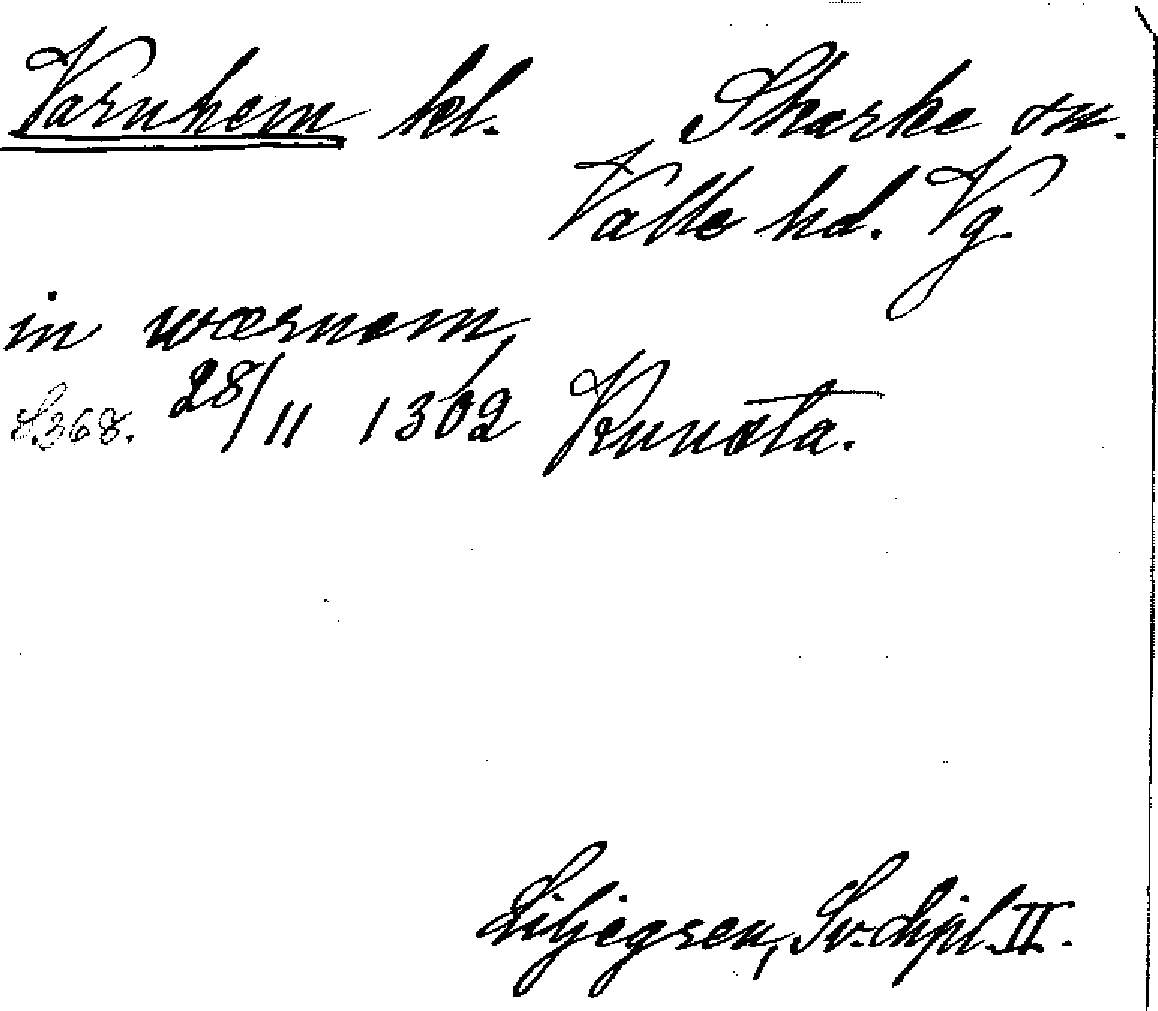 Varnhem kl. Skarke sn.
Valle hd. Vg.
in wærnem,
S. 368. 28/11 1302 Kunsta.
Liljegren, Sv. dipl. II.